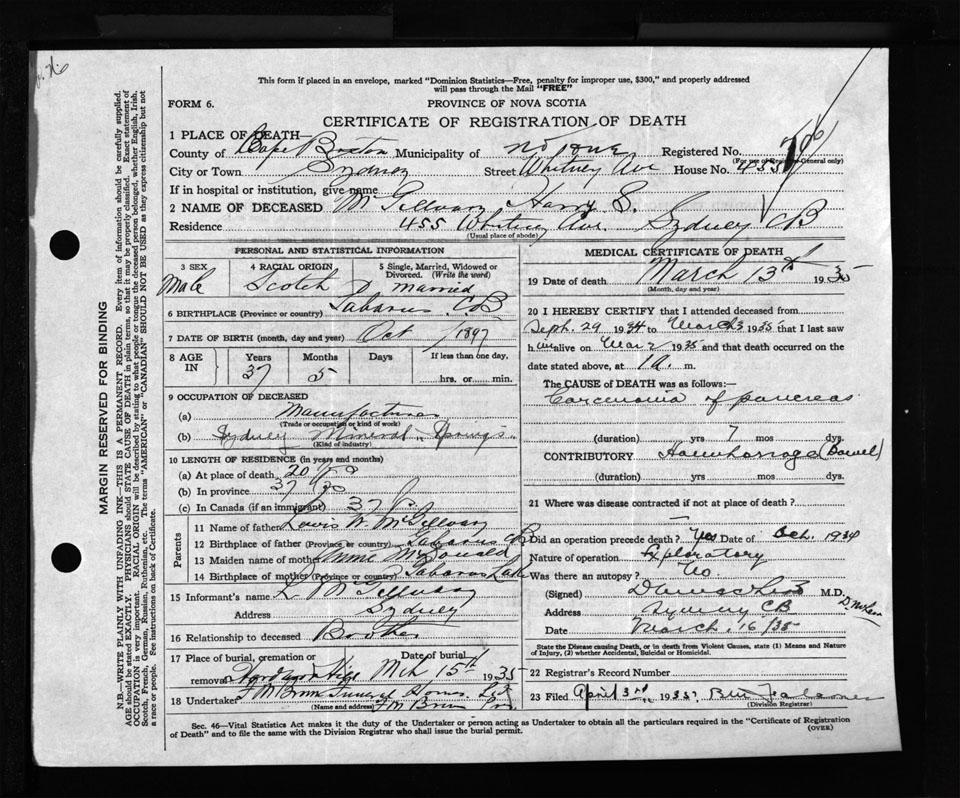 This form if placed in an envelope, marked "Dominion Statistics—Free, penalty for improper use, $300," and properly addressed
will pass through the Mail "FREE"
FORM 6.
PROVINCE OF NOVA SCOTIA
CERTIFICATE OF REGISTRATION OF DEATH
1 PLACE OF DEATH—
County of Cape Breton Municipality of Registered No.
(For use of Registrar-General only)
City or Town Sydney Street Whitney Ave House No. 455
If in hospital or institution, give name
2 NAME OF DECEASED McGillvary, Harry S.
Residence 455 Whitney Ave. Sydney CB
(Usual place of abode)
PERSONAL AND STATISTICAL INFORMATION
3 SEX 4 RACIAL ORIGIN 5 Single, Married, Widowed or Divorced. (Write the word)
Male Scotch married
6 BIRTHPLACE (Province or country) Gabarus C.B
7 DATE OF BIRTH (month, day and year) Oct 1897
8 AGE IN Years Months Days If less than one day.
37 5 hrs. or min.
9 OCCUPATION OF DECEASED
(a) Manufacturer
(Trade or occupation or kind of work)
(b) Sydney Mineral Springs
(Kind of industry)
10 LENGTH OF RESIDENCE (in years and months)
(a) At place of death 20
(b) In province 37
(c) In Canada (if an immigrant) 37
Parents
11 Name of father Lewis W. McGillvary
12 Birthplace of father (Province or country) Gabarus CB
13 Maiden name of mother Annie McDonald
14 Birthplace of mother (Province or country) Gabarus Lake
15 Informant's name L McGillvary
Address Sydney
16 Relationship to deceased Brother
17 Place of burial, cremation or removal Date of burial
Mch 15th 1935
18 Undertaker F M Brown Funeral Homes Ltd
(Name and address) F M Brown
MEDICAL CERTIFICATE OF DEATH
19 Date of death March 13th 1935
(Month, day and year)
20 I HEREBY CERTIFY that I attended deceased from
Sept. 29 1934 to March 3 1935 that I last saw
him alive on Mar 2 1935 and that death occurred on the
date stated above, at 1 a. m.
The CAUSE of DEATH was as follows:—
Carcinoma of pancreas
(duration) yrs 7 mos dys.
CONTRIBUTORY Haemhorrage (Bowel)
(duration) yrs mos dys.
21 Where was disease contracted if not at place of death?
Did an operation precede death? Yes Date of Oct. 1934
Nature of operation Exploratory
Was there an autopsy? No
(Signed) M.D.
Address Sydney CB
Date March 16/35
State the Disease causing Death, or in death from Violent Causes, state (1) Means and Nature of Injury, (2) whether Accidental, Suicidal or Homicidal.
22 Registrar's Record Number
23 Filed April 3rd 1935
(Division Registrar)
Sec. 46—Vital Statistics Act makes it the duty of the Undertaker or person acting as Undertaker to obtain all the particulars required in the "Certificate of Registration
of Death" and to file the same with the Division Registrar who shall issue the burial permit.
(OVER)
MARGIN RESERVED FOR BINDING
N.B.—WRITE PLAINLY WITH UNFADING INK—THIS IS A PERMANENT RECORD. Every item of information should be carefully supplied.
AGE should be stated EXACTLY. PHYSICIANS should STATE CAUSE OF DEATH in plain terms, so that it may be properly classified. Exact statement of
OCCUPATION is very important. RACIAL ORIGIN will be described by stating to what people or tongue the deceased person belonged, whether English, Irish,
Scotch, French, German, Russian, Ruthenian, etc. The terms "AMERICAN" or "CANADIAN" SHOULD NOT BE USED as they express citizenship but not
a race or people. See instructions on back of Certificate.